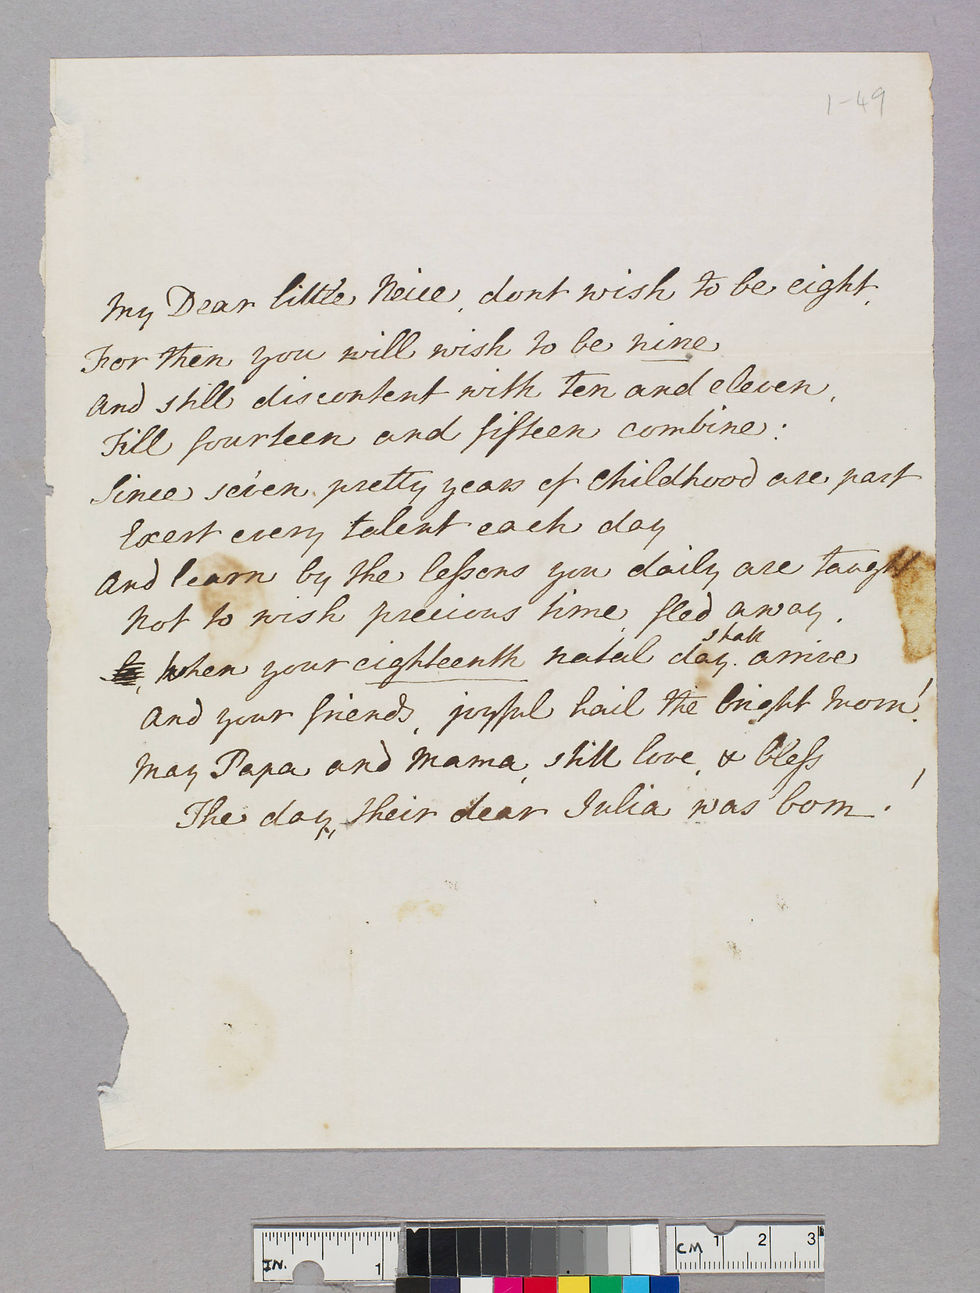 1-49
My Dear little Neice, dont wish to be eight,
For then you will wish to be nine
And still discontent with ten and eleven,
Till fourteen and fifteen combine:
Since seven pretty years of Childhood are past
Exert every talent each day
And learn by the lessons you daily are taugh
Not to wish precious time fled away.
shall
When your eighteenth natal day arrive
And your friends, joyful hail the bright Morn!
May Papa and Mama, still love, & bless
The day, their dear Julia was born!
IN. 1
CM 1 2 3